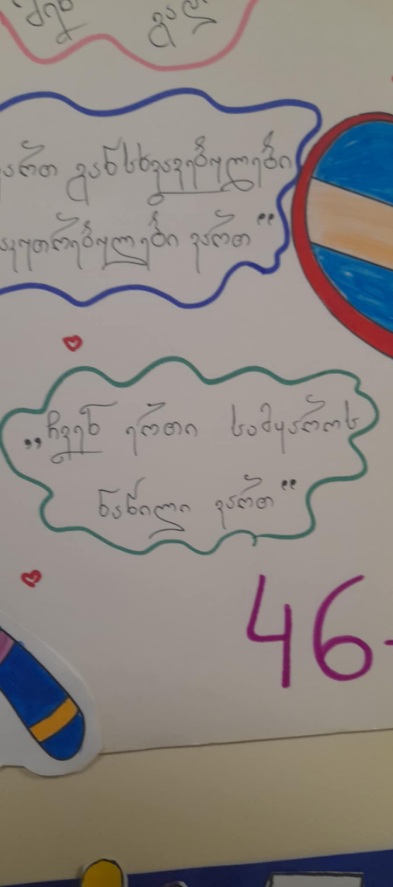 ართ განსხვავებულები
აკუთრებულები ვართ“
„ჩვენ ერთი სამყაროს
ნაწილი ვართ“
46